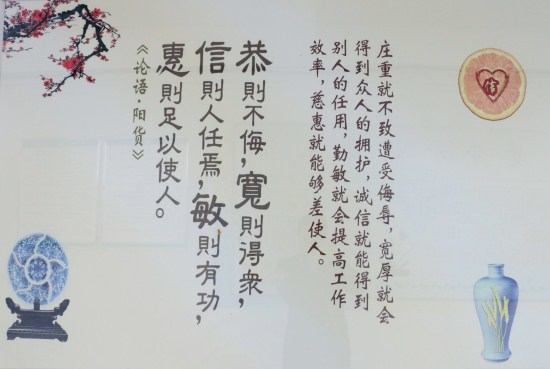 庄重就不致遭受侮辱，宽厚就会
得到众人的拥护，诚信就能得到
别人的任用，勤敏就会提高工作
效率，慈惠就能够差使人。
恭則不侮，寬則得衆，
信則人任焉，敏則有功，
惠則足以使人。
《论语·阳货》